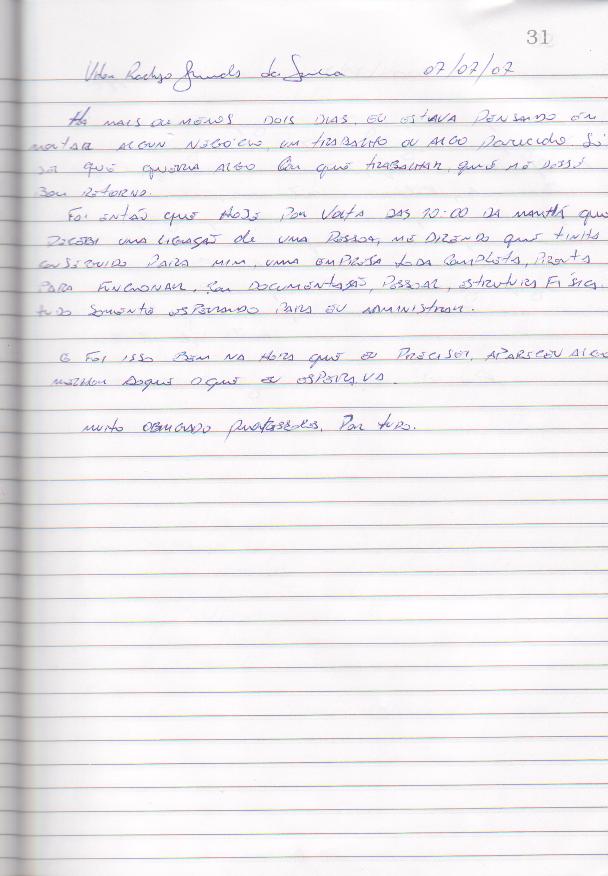 31
Rodrigo da 07/07/07
Há mais ou menos dois dias, eu estava pensando em
montar algun negócio, um trabalho ou algo parecido. Só
sei que queria algo com que trabalhar, que me desse
bom retorno.
Foi então que hoje por volta das 10:00 da manhã que
recebi uma ligação de uma pessoa, me dizendo que tinha
conseguido para mim, uma empresa toda completa, pronta
para funcionar, com documentação, pessoal, estrutura física,
tudo somente esperando para eu administrar.
E foi isso bem na hora que eu precisei, apareceu algo
melhor doque oque eu esperava.
Muito obrigado professores, por tudo.